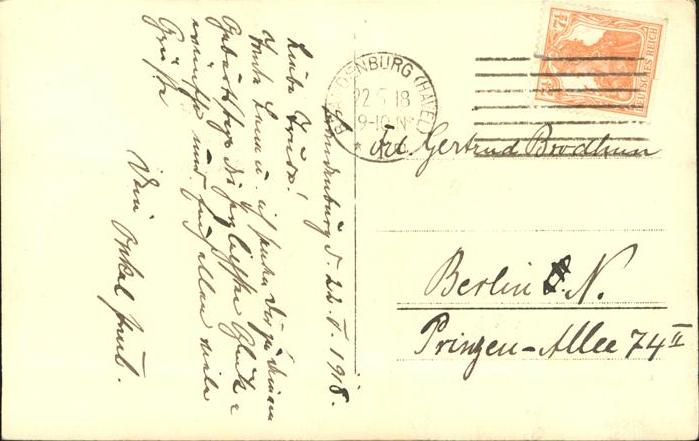 Brandenburg d. 22.5.1918.
Liebe Trude!
Tante Lene u. ich senden Dir zu Deinem
Geburtstage die herzlichsten Glück=
wünsche und Euch allen viele
Grüße
Dein Onkel
BRANDENBURG (HAVEL)
22.5.18
9-10 N
7½
DEUTSCHES REICH
Frl. Gertrud Brodhun
Berlin N.
Prinzen-Allee 74 II